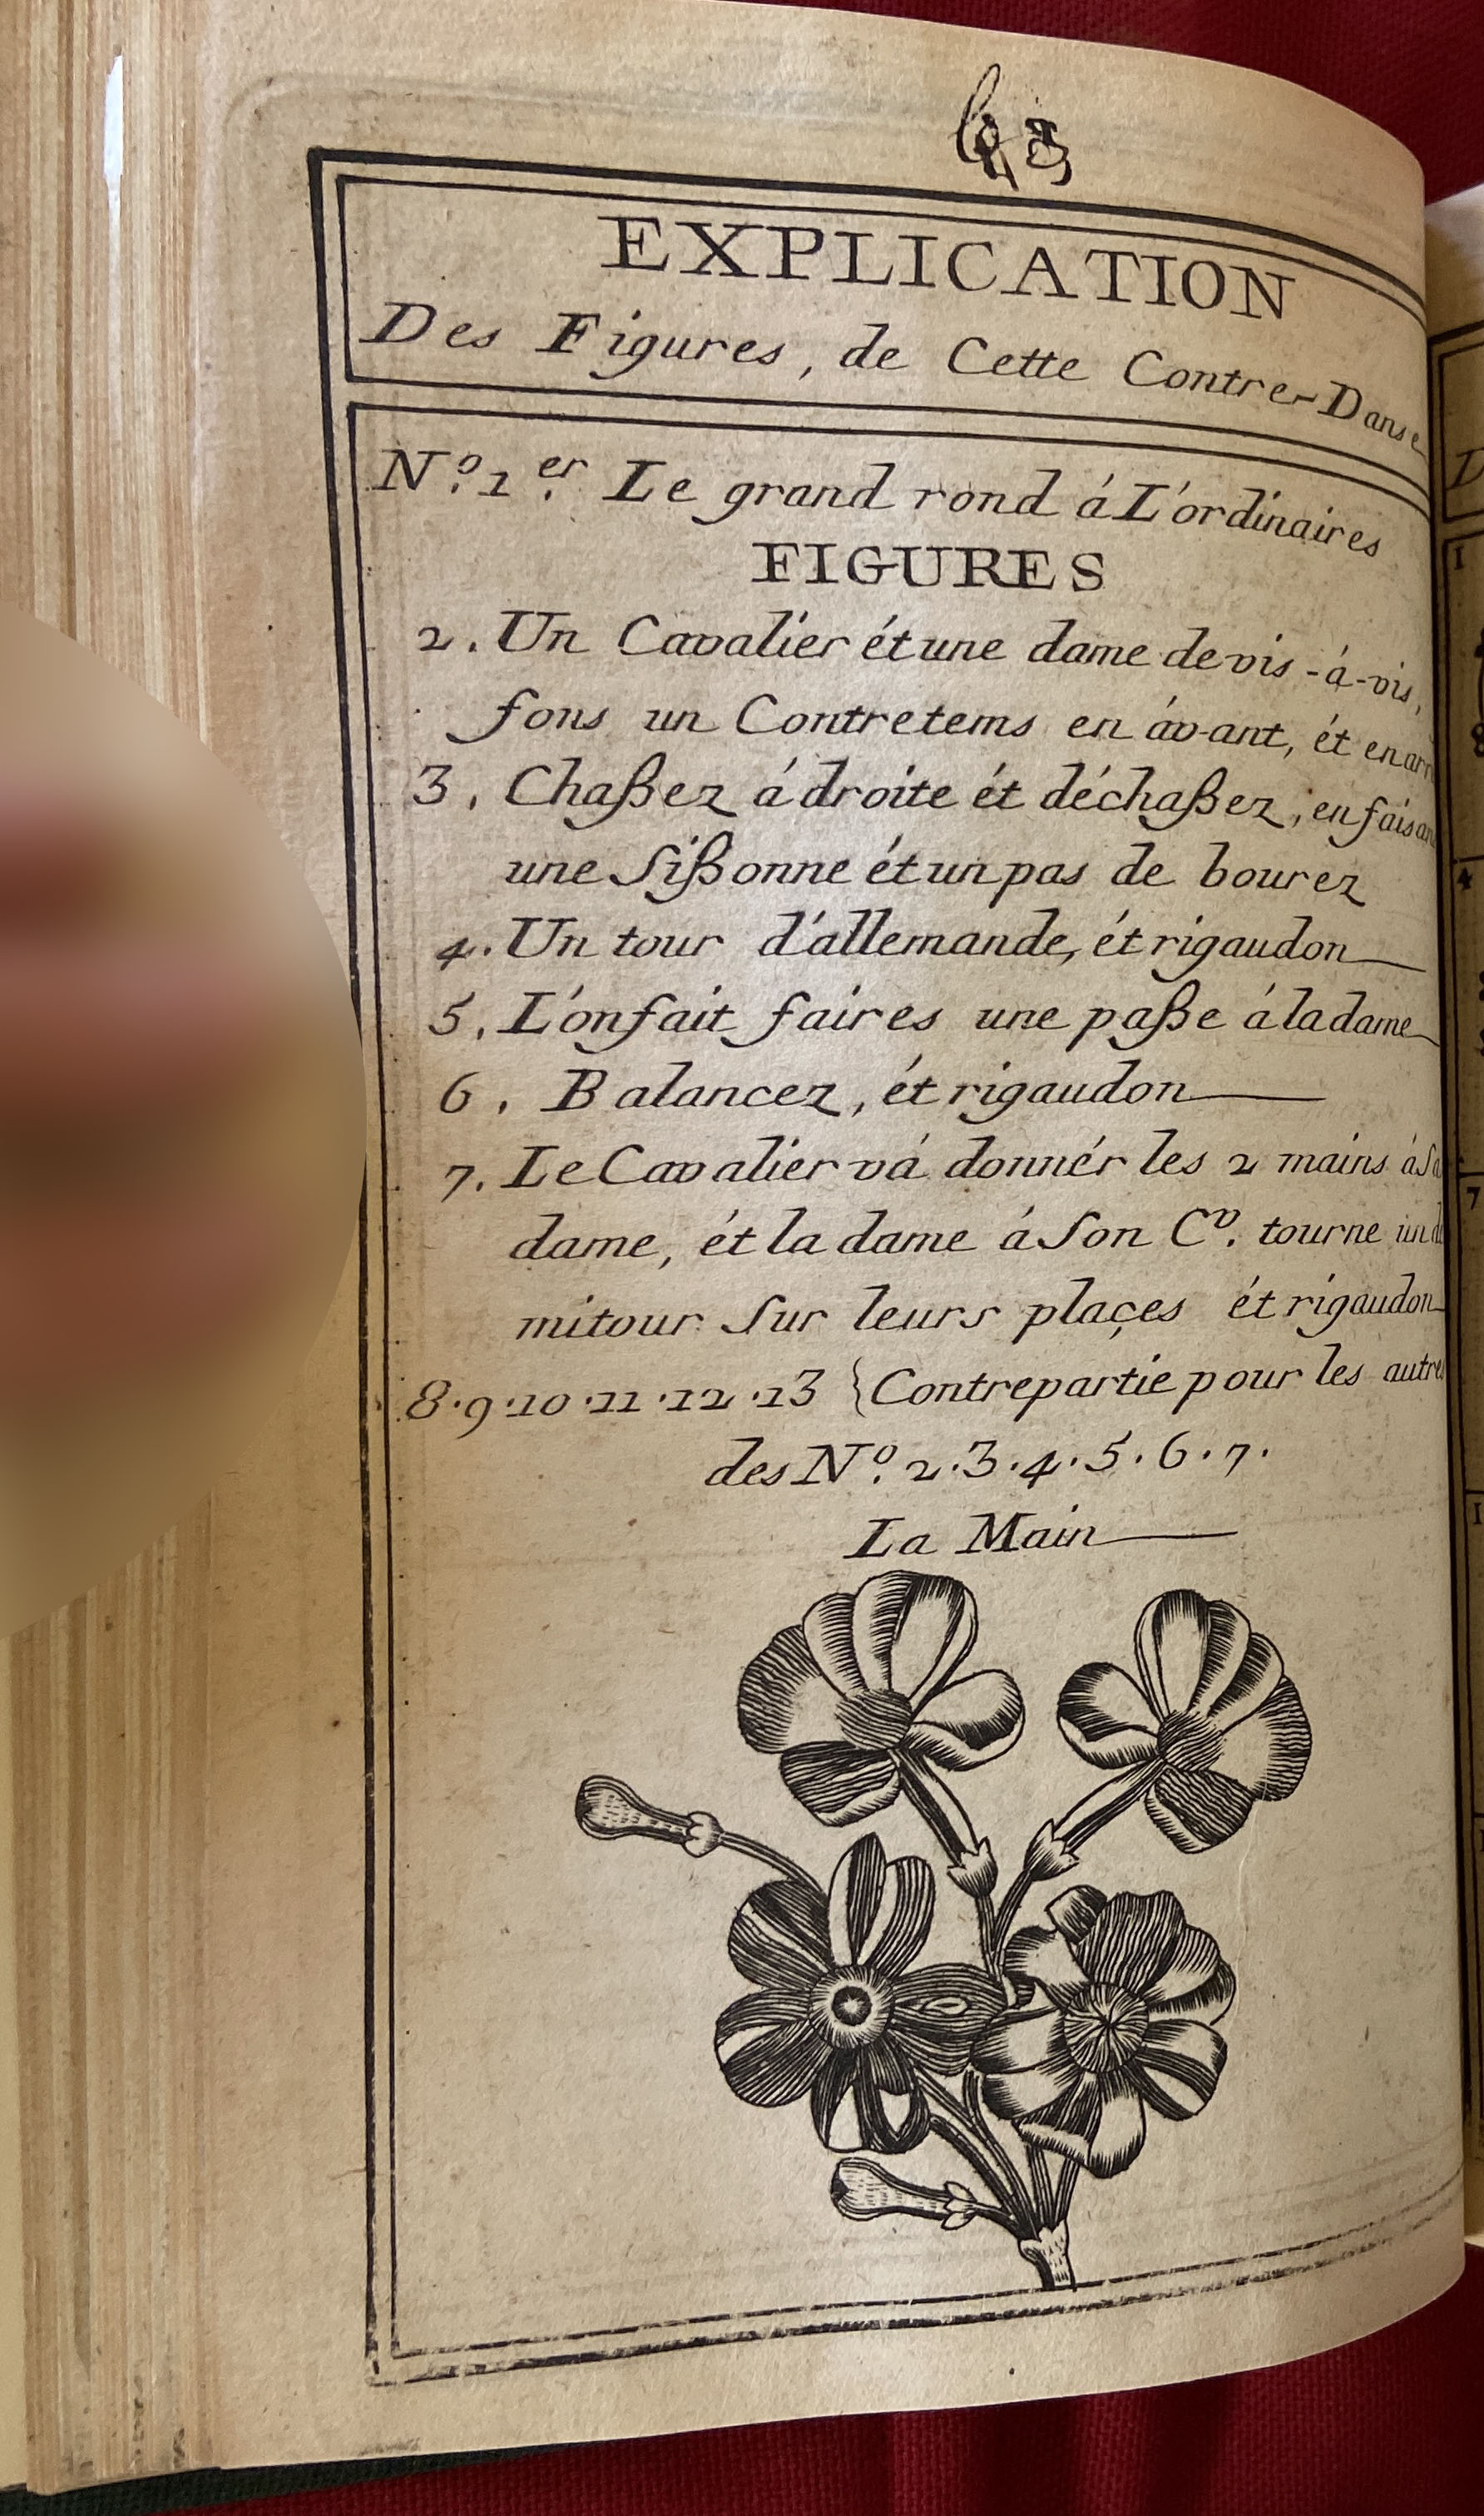 EXPLICATION
Des Figures, de Cette Contre-Danse
N.º 1.er Le grand rond á L'ordinaires
FIGURES
2. Un Cavalier ét une dame de vis-á-vis,
fons un Contretems en ávant, ét en arr
3. Chaßez á droite ét déchaßez, en faisan
une Sißonne ét un pas de bourez
4. Un tour d'allemande, ét rigaudon
5. L'on fait faires une paße á la dame
6. Balancez, ét rigaudon
7. Le Cavalier vá donnér les 2 mains á Sa
dame, ét la dame á Son C.v tourne un d
mitour Sur leurs plaçes ét rigaudon
8.9.10.11.12.13 { Contrepartie pour les autre
des N.º 2.3.4.5.6.7.
La Main